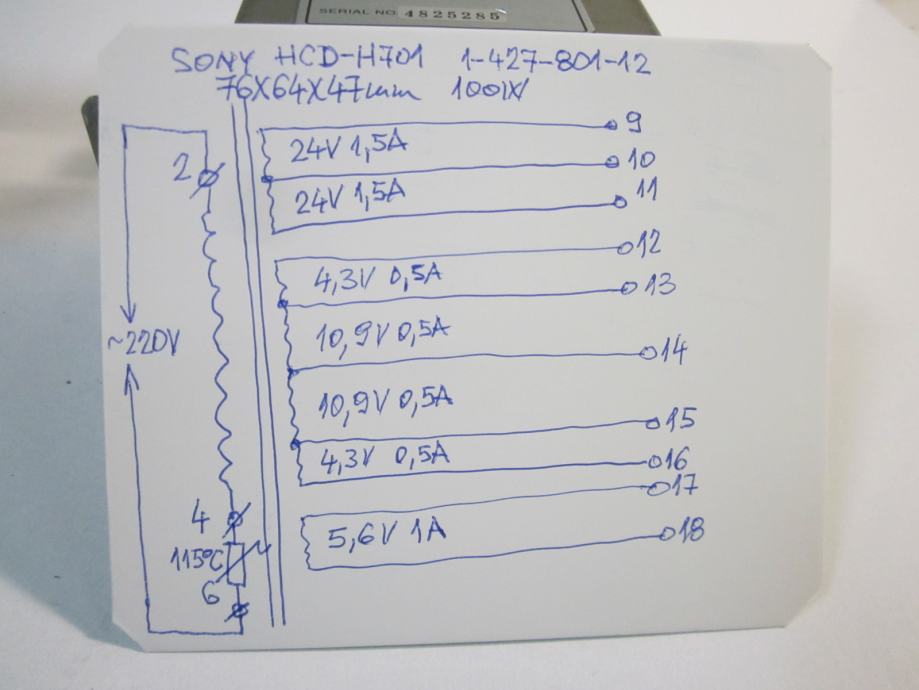 SERIAL NO. 4825285
SONY HCD-H701 1-427-801-12
76X64X47mm 100W
2
24V 1,5A
9
10
24V 1,5A
11
12
4,3V 0,5A
13
~220V
10,9V 0,5A
14
10,9V 0,5A
15
4,3V 0,5A
16
17
4
5,6V 1A
18
115°C
6